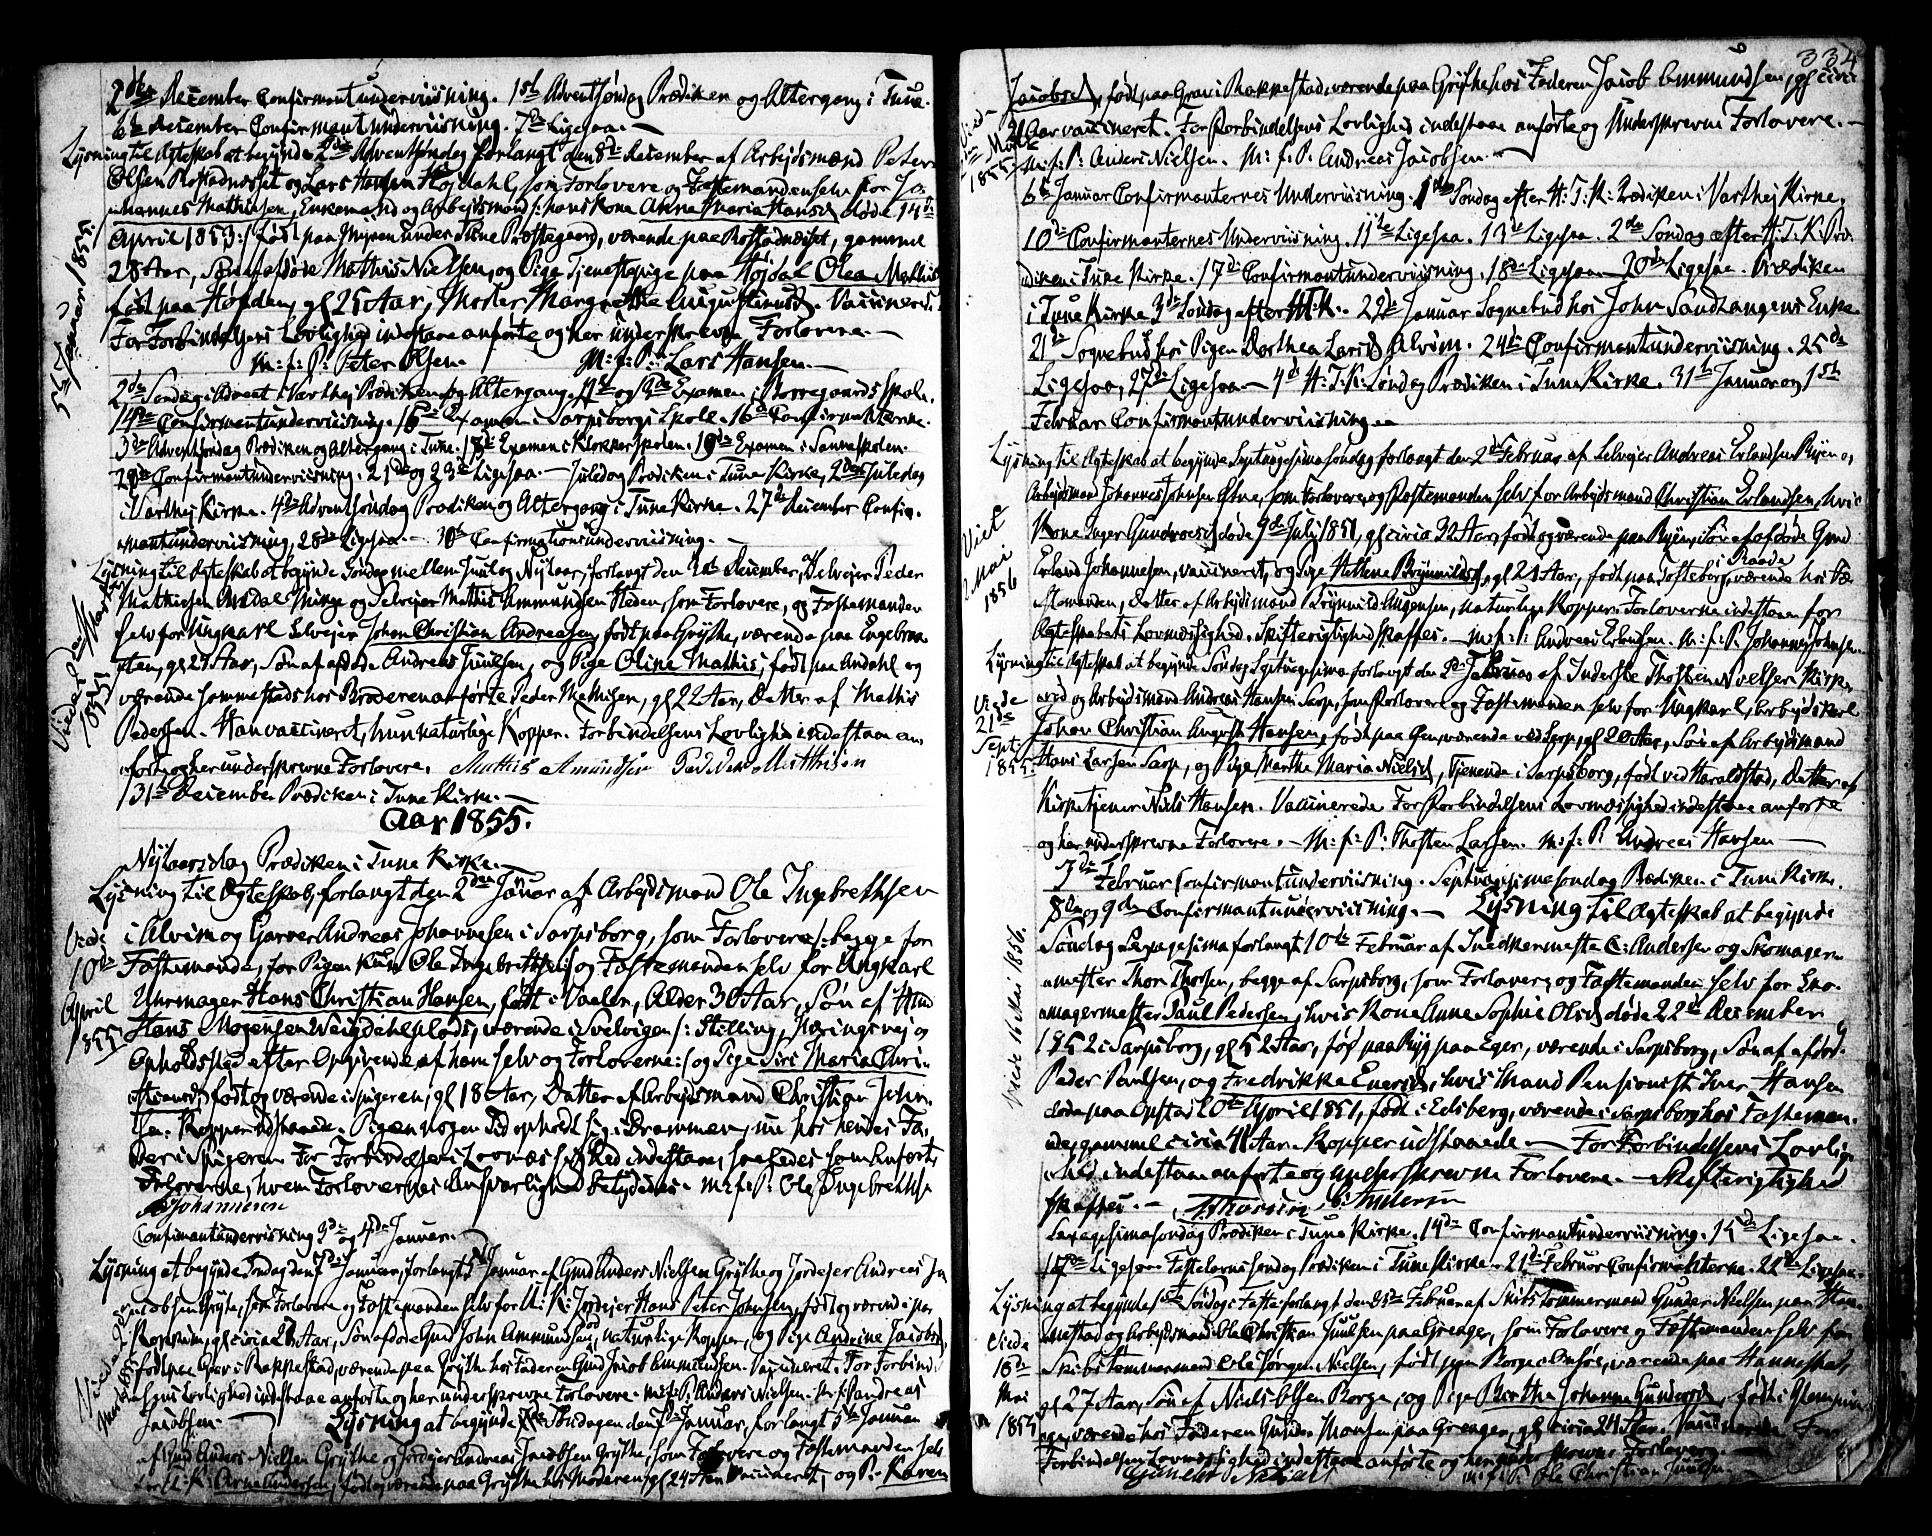 2den December Confirmantundervisning. 1ste Adventsøndag Prædiken og Altergang i Tune.
6te December Confirmantundervisning. 7de Ligesaa.—
Lysning til Ægteskab at begynde 2den Adventsøndag forlangt den 8de December af Arbejdsmænd Peter
Olsen og Lars Hansen Højdahl, som Forlovere og Fæstemanden selv for Jo-
hannes Mathisen, Enkemand og Arbejdsmand /: hans Kone Anna Maria Hansd døde 14de
April 1853 :/ født paa Myren under Tune Præstegaard, værende paa, gammel
28 Aar, Søn af døde Mathis Nielsen, og Pige Tjenestepige paa Højdal Olea Mathisd
født paa Højden, gl 25 Aar, Moder Margrethe Augustinusd. Vaccinered.
For Forbindelsens Lovlighed indestaae anførte og her underskrevne Forlovere.—
M. f. P. Peter Olsen. M. f. P. Lars Hansen.—
5te Januar 1855.
2den Søndag i Advent i Varthej Prædiken og Altergang. og Examen i Borregaards Skole.
14de Confirmantundervisning. Examen i Sarpsborgs Skole. 16de Confirmanterne.
3die Adventsøndag Prædiken og Altergang i Tune. 18de Examen i Klokkerskolen. 19de Examen i Sanneskolen.
20de Confirmantundervisning. 21de og 23de Ligesaa.— Juledag Prædiken i Tune Kirke, 2den Juledag
i Varthej Kirke. 4de Adventsøndag Prædiken og Altergang i Tune Kirke. 27de December Confir-
mantundervisning, 28de Ligesaa.— 30te Confirmationsundervisning.—
Lysning til Ægteskab at begynde Søndag mellem Juul og Nytaar, forlangt den December, Selvejer Peder
Mathisen Andal Minge og Selvejer Mathis Ammundsen Heden, som Forlovere, og Fæstemanden
selv for Ungkarl Selvejer Johan Christian Andreasen, født paa Grythe, værende paa Engebraa-
ten, gl 29 Aar, Søn af afdøde Andreas Juulsen, og Pige Oline Mathisd, født paa Andahl og
værende sammesteds hos Broderen anførte Peder Mathisen, gl 22 Aar, Datter af Mathis
Pedersen. Han vaccineret, hun naturlige Kopper. Forbindelsens Lovlighed indestaae an-
førte og her underskrevne Forlovere. Mathis Amundsen Peder Matthisen
Viede 1855
31te December Prædiken i Tune Kirke.—
Aar 1855.
Nytaarsdag Prædiken i Tune Kirke.—
Lysning til Ægteskab, forlangt den 2den Januar af Arbejdsmand Ole Ingebrethsen
i Alvim og Garver Andreas Johannesen i Sarpsborg, som Forlovere /: begge for
Fæstemanden, for Pigen kun Ole Ingebrethsen :/ og Fæstemanden selv for Ungkarl
Uhrmager Hans Christian Hansen, født i Vaaler, Alder 30 Aar, Søn af Gmd
Hans Mogensen, værende i Svelvigen /: Stilling, Næringsvej og
Opholdssted efter Opgivende af ham selv og Forloverne :/ og Pige Siri Maria Chri-
stiansd, født og værende i Spigeren, gl 18 Aar, Datter af Arbejdsmand Christian John-
sen. Kopper udstaaede. Pigen nogen Tid opholdt sig i Drammen, nu hos hendes Fa-
der i Spigeren. For Forbindelsens Lovmæssighed indestaae, saaledes som anførte
Forloverne, hvem Forlovernes Ansvarlighed betydedes. M. f. P. Ole Ingebrethsen
A Johannesen
Viede
10de
April
1855
Confirmantundervisning 3die og 4de Januar.
Lysning at begynde Søndag den 7de Januar, forlangt 5te Januar af Gmd Anders Nielsen Grythe og Jordejer Andreas Ja-
cobsen Grythe, som Forlovere og Fæstemanden selv for U. K. Jordejer Hans Peter Johnsen, født og værende paa
Kopperud, gl circa Aar, Søn af døde Gmd John Ammundsen, naturlige Kopper, og Pige Andrine Jacobsd,
født paa Grav i Rakkestad, værende paa Grythe hos Faderen Gmd Jacob Ammundsen. Vaccineret. For Forbind-
elsens Lovlighed indestaae anførte og her underskrevne Forlovere. M. f. P. Anders Nielsen. M. f. P. Andreas
Jacobsen.—
Lysning at begynde Søndagen den 7de Januar, forlangt 5te Januar
af Gmd Anders Nielsen Grythe og Jordejer Andreas Jacobsen Grythe, som Forlovere og Fæstemanden selv
for U. K. Arne Andersen, født og værende paa Grythe hos Moderen, gl 24 Aar Vaccineret, og P. Karen
334
Jacobsd, født paa Grav i Rakkestad, værende paa Grythe hos Faderen Jacob Ammundsen, gl circa
21 Aar vaccineret. For Forbindelsens Lovlighed indestaae anførte og Underskrevne Forlovere.—
M. f. P. Anders Nielsen. M. f. P. Andreas Jacobsen.—
1855
6te Januar Confirmanternes Undervisning. 1ste Søndag efter H. T. K. Prædiken i Varthej Kirke.
10de Confirmanternes Undervisning. 11te Ligesaa. 13de Ligesaa. 2den Søndag efter H. T. K. Præ-
diken i Tune Kirke. 17de Confirmantundervisning. 18de Ligesaa 20de Ligesaa. Prædiken
i Tune Kirke 3die Søndag efter H. K. 22de Januar Sognebud hos John Sandtangens Enke.
21de Sognebud hos Pigen Dorthea Larsd Alvim. 24de Confirmantundervisning. 25de
Ligesaa, 27de Ligesaa.— 4de H. T. K. Søndag Prædiken i Tune Kirke. 31te Januar og 1ste
Februar Confirmantundervisning.—
Lysning til Ægteskab at begynde Septuagesima Søndag forlangt den 2den Februar af Selvejer Andreas Erlandsen Ryen og
Arbejdsmand Johannes Johnsen, som Forlovere, og Fæstemanden selv for Arbejdsmand Christian Erlandsen, hvis
Kone Inger Gundersd døde 9de July 1851, gl circa 32 Aar, født og værende paa Ryen, Søn af afdøde Gmd
Erland Johannesen, vaccineret, og Pige Hellene Brynnildsd, gl 21 Aar, født paa Tosteberg i Raade, værende hos Fæ-
stemanden, Datter af Arbejdsmand Brynnild Augensen, naturlige Kopper. Forloverne indestaae for
Ægteskabets Lovmæssighed. Skifterigtighed skaffes.— M. f. P. Andreas Erlandsen. M. f. P. Johannes Johnsen
Viet
2 Mai
1856
Lysning til Ægteskab at begynde Søndag Septuagesima forlangt den Februar af Inderste Thosten Kirke-
og Arbejdsmand Andreas Hansen Sarp, som Forlovere og Fæstemanden selv for Ungkarl, Arbejdskarl
Johan Christian August Hansen, født paa, værende ved Sarp, gl 20 Aar, Søn af Arbejdsmand
Hans Larsen Sarp, og Pige Marthe Maria Nielsd, Tjenende i Sarpsborg, født ved Haraldstad, Datter af
Kirketjener Niels Hansen. Vaccinerede. For Forbindelsens Lovmæssighed indestaae anførte
og her underskrevne Forlovere.— M. f. P. Thosten Larsen. M. f. P. Andreas Hansen—
Viede
21de
Septr
1855
3die Februar Confirmantundervisning. Septuagesimasøndag Prædiken i Tune Kirke.
8de og 9de Confirmantundervisning.— Lysning til Ægteskab at begynde
Søndag Sexagesima forlangt 10de Februar af Snedkermester C. Andersen og Skomager-
mester Thor Thorsen, begge af Sarpsborg, som Forlovere, og Fæstemanden selv for Sko-
magermester Paul Pedersen, hvis Kone Anne Sophie Olsd døde 22de December
1852 i Sarpsborg, gl 52 Aar, født paa paa Eger, værende i Sarpsborg, Søn af afdød.
Peder Paulsen, og Fredrikke Enersd, hvis Mand Pensionist Iver Hansen
døde paa Opstad 20de April 1851, født i Edsberg, værende i Sarpsborg hos Fæsteman-
den, gammel circa 41 Aar. Kopper udstaaede.— For Forbindelsens Lovlig-
hed indestaae anførte og underskrevne Forlovere.— Skifterigtighed
skaffes.— T. Thorsen C. Andersen
Viede 16 Mai 1856.
Sexagesimasøndag Prædiken i Tune Kirke. 14de Confirmantundervisning. 15de Ligesaa.
17de Ligesaa. Fastelavnssøndag Prædiken i Tune Kirke. 21de Februar Confirmanterne. 22de Ligesaa.
Lysning at begynde 1ste Søndag i Faste forlangt den Februar af Skibstømmermand Gunder Nielsen paa Han-
nestad og Arbejdsmand Ole Christian Juulsen paa Grenger, som Forlovere og Fæstemanden selv for
Skibstømmermand Ole Jørgen Nielsen, født paa Borge Onsøe, værende paa Hannestad,
gl 27 Aar, Søn af Niels Olsen Borge, og Pige Berthe Johanne Gundersd, født i Glemminge,
værende hos Faderen Gunder Hansen paa Grenger, gl circa 24 Aar. Vaccinerede. For
Forbindelsens Lovmæssighed indestaae anførte og herunder skrevne Forlovere.—
Gunder Nielsen M. f. P. Ole Christian Juulsen.
Viede
18de
Mai
1855